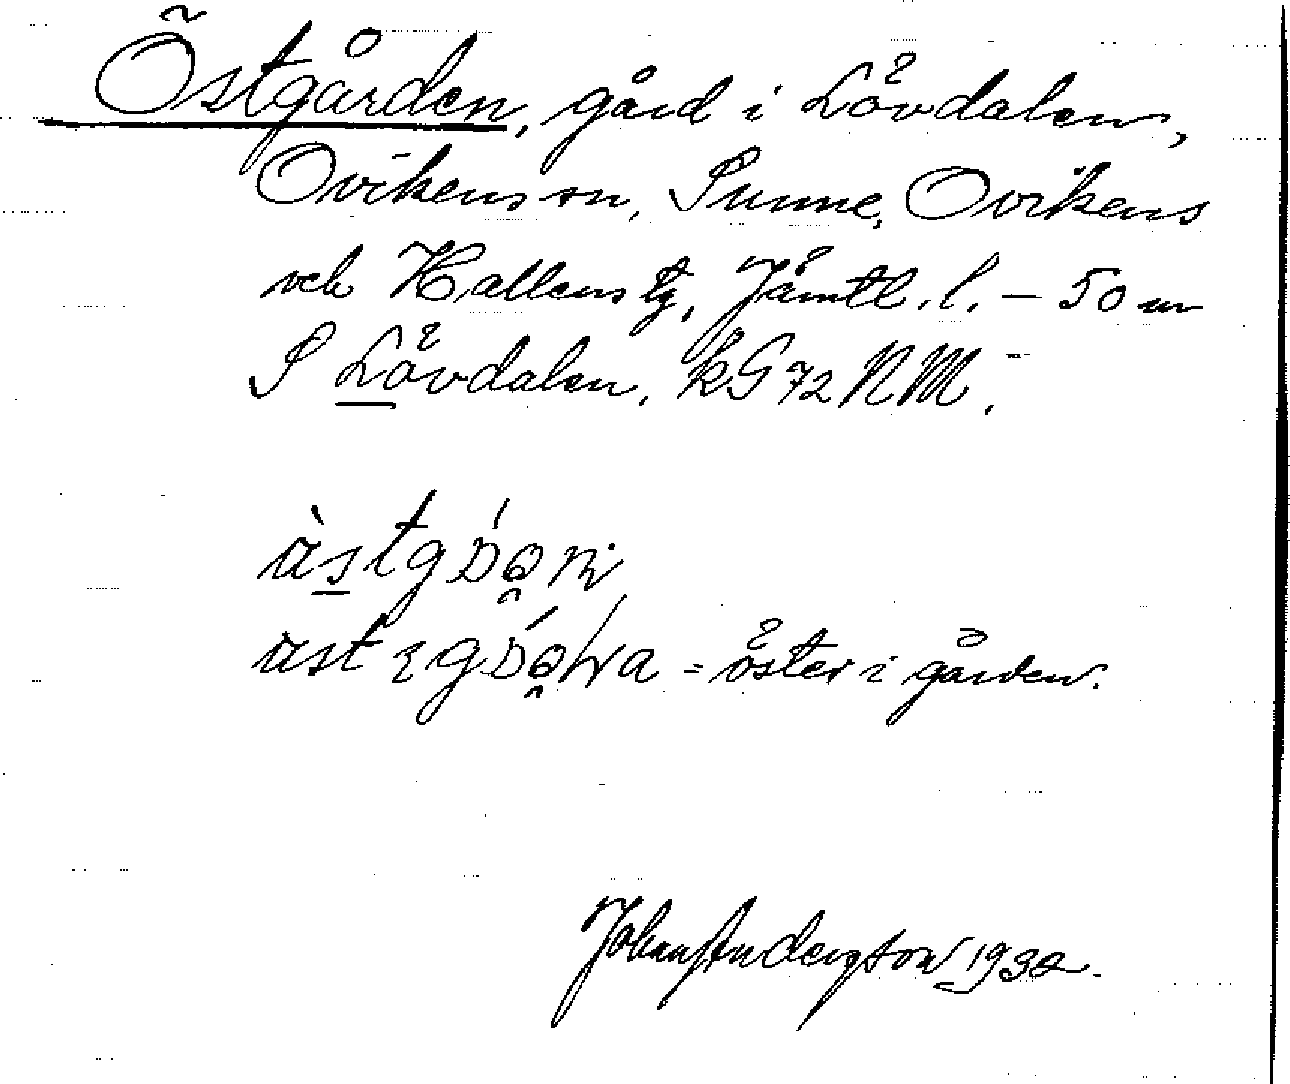 Östgården, gård i Lövdalen,
Ovikens sn, Sunne, Ovikens
och Hallens tg, Jämtl. l. – 50 m
S Lövdalen, kG 72 NM.
= öster i gården.
Johan Andersson 1932.